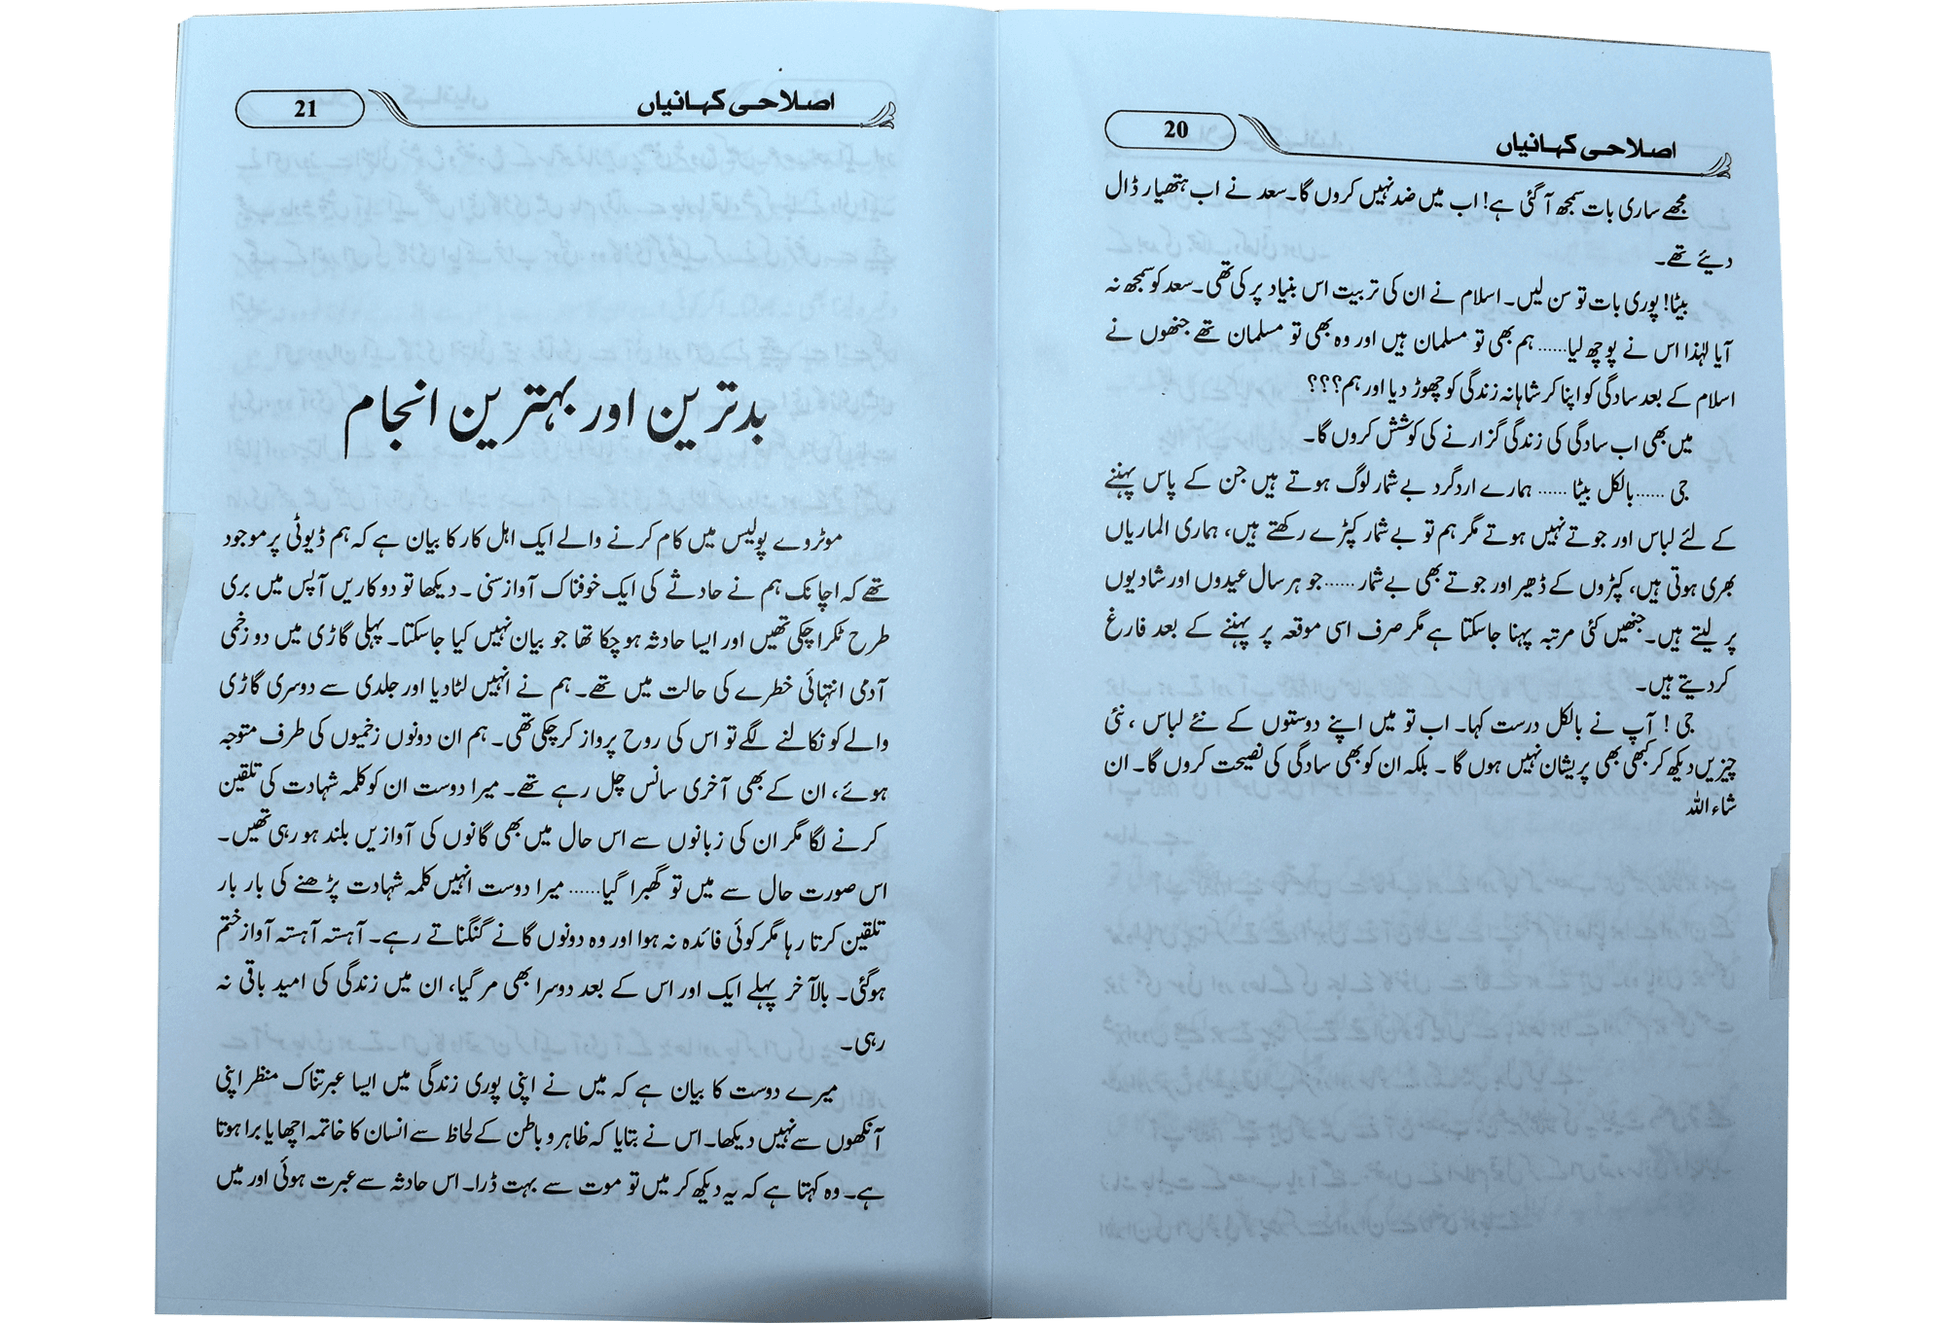 اصلاحی کہانیاں 20
مجھے ساری بات سمجھ آگئی ہے! اب میں ضد نہیں کروں گا۔ سعد نے اب ہتھیار ڈال
دیئے تھے۔
بیٹا! پوری بات تو سن لیں۔ اسلام نے ان کی تربیت اس بنیاد پر کی تھی۔ سعد کو سمجھ نہ
آیا لہٰذا اس نے پوچھ لیا...... ہم بھی تو مسلمان ہیں اور وہ بھی تو مسلمان تھے جنھوں نے
اسلام کے بعد سادگی کو اپنا کر شاہانہ زندگی کو چھوڑ دیا اور ہم؟؟؟
میں بھی اب سادگی کی زندگی گزارنے کی کوشش کروں گا۔
جی ...... بالکل بیٹا ...... ہمارے اردگرد بے شمار لوگ ہوتے ہیں جن کے پاس پہننے
کے لئے لباس اور جوتے نہیں ہوتے مگر ہم تو بے شمار کپڑے رکھتے ہیں، ہماری الماریاں
بھری ہوتی ہیں، کپڑوں کے ڈھیر اور جوتے بھی بے شمار ...... جو ہر سال عیدوں اور شادیوں
پر لیتے ہیں۔ جنھیں کئی مرتبہ پہنا جاسکتا ہے مگر صرف اسی موقعہ پر پہننے کے بعد فارغ
کردیتے ہیں۔
جی ! آپ نے بالکل درست کہا۔ اب تو میں اپنے دوستوں کے نئے لباس ، نئی
چیزیں دیکھ کر کبھی بھی پریشان نہیں ہوں گا ۔ بلکہ ان کو بھی سادگی کی نصیحت کروں گا۔ ان
شاء اللہ
اصلاحی کہانیاں 21
بدترین اور بہترین انجام
موٹروے پولیس میں کام کرنے والے ایک اہل کار کا بیان ہے کہ ہم ڈیوٹی پر موجود
تھے کہ اچانک ہم نے حادثے کی ایک خوفناک آواز سنی ۔ دیکھا تو دو کاریں آپس میں بری
طرح ٹکرا چکی تھیں اور ایسا حادثہ ہو چکا تھا جو بیان نہیں کیا جاسکتا۔ پہلی گاڑی میں دو زخمی
آدمی انتہائی خطرے کی حالت میں تھے۔ ہم نے انہیں لٹا دیا اور جلدی سے دوسری گاڑی
والے کو نکالنے لگے تو اس کی روح پرواز کر چکی تھی۔ ہم ان دونوں زخمیوں کی طرف متوجہ
ہوئے، ان کے بھی آخری سانس چل رہے تھے۔ میرا دوست ان کو کلمہ شہادت کی تلقین
کرنے لگا مگر ان کی زبانوں سے اس حال میں بھی گانوں کی آوازیں بلند ہو رہی تھیں۔
اس صورت حال سے میں تو گھبرا گیا...... میرا دوست انہیں کلمہ شہادت پڑھنے کی بار بار
تلقین کرتا رہا مگر کوئی فائدہ نہ ہوا اور وہ دونوں گانے گنگناتے رہے۔ آہستہ آہستہ آواز ختم
ہوگئی۔ بالآخر پہلے ایک اور اس کے بعد دوسرا بھی مر گیا، ان میں زندگی کی امید باقی نہ
رہی۔
میرے دوست کا بیان ہے کہ میں نے اپنی پوری زندگی میں ایسا عبرتناک منظر اپنی
آنکھوں سے نہیں دیکھا۔ اس نے بتایا کہ ظاہر و باطن کے لحاظ سے انسان کا خاتمہ اچھا یا برا ہوتا
ہے۔ وہ کہتا ہے کہ یہ دیکھ کر میں تو موت سے بہت ڈرا۔ اس حادثہ سے عبرت ہوئی اور میں